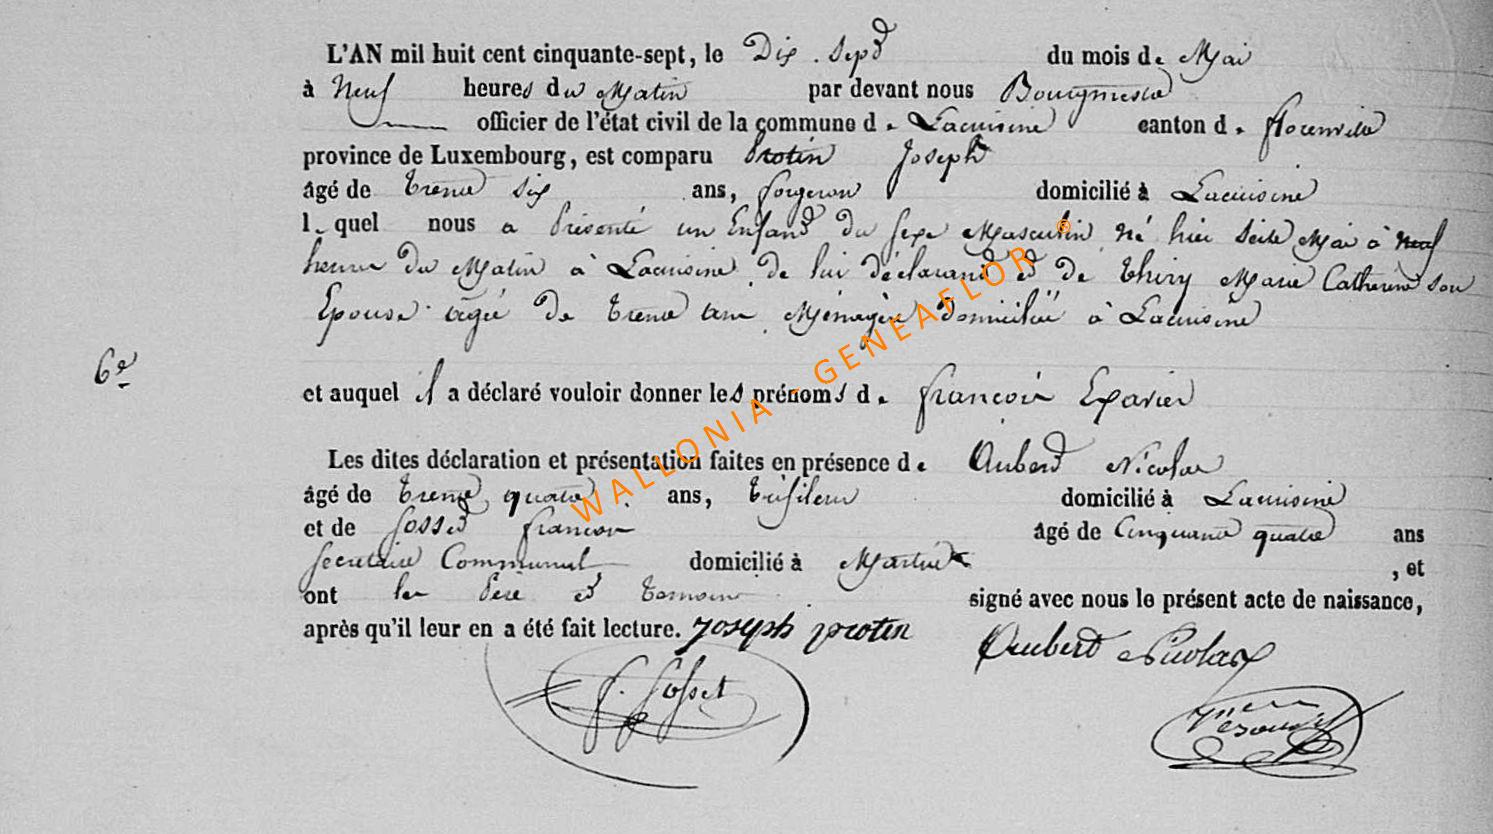 L'AN mil huit cent cinquante-sept, le Dix-sept du mois de Mai
à Neuf heures du Matin par devant nous Bourgmestre
officier de l'état civil de la commune de Lacuisine canton de florenville
province de Luxembourg, est comparu Protin Joseph
âgé de trente six ans, forgeron domicilié à Lacuisine
lequel nous a Présenté un Enfant du sexe Masculin né hier seize Mai à neuf
heures du Matin à Lacuisine de lui déclarant et de Thiry Marie Catherine son
Epouse agée de trente ans Ménagère domiciliée à Lacuisine
6e
et auquel il a déclaré vouloir donner les prénoms de françois Exavier
Les dites déclaration et présentation faites en présence de Aubert Nicolas
âgé de trente quatre ans, tréfileur domicilié à Lacuisine
et de Gosset françois âgé de Cinquante quatre ans
secrétaire Communal domicilié à Martué , et
ont les Père et temoins signé avec nous le présent acte de naissance,
après qu'il leur en a été fait lecture. Joseph protin
Aubert Nicolas
f. Gosset
WALLONIA - GENEAFLOR ®